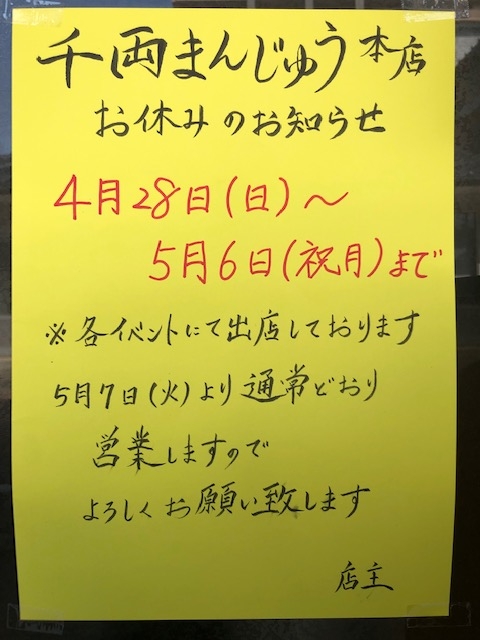 千両まんじゅう本店
お休みのお知らせ
4月28日(日)～
5月6日(祝月)まで
※各イベントにて出店しております
5月7日(火)より通常どおり
営業しますので
よろしくお願い致します
店主